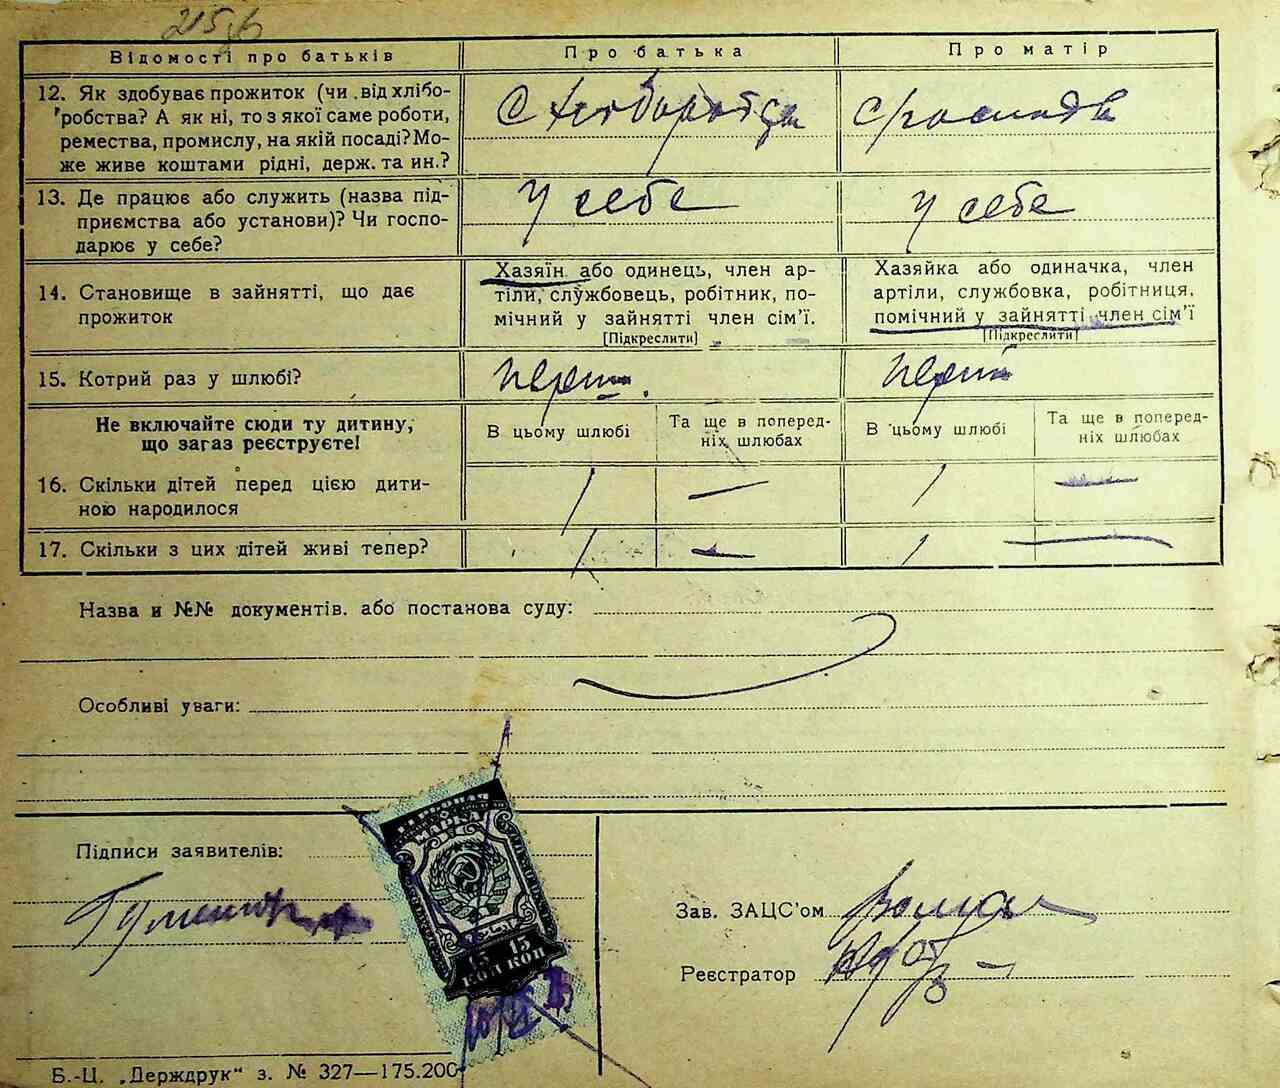 Відомості про батьків
Про батька
Про матір
12. Як здобуває прожиток (чи від хлібо-
робства? А як ні, то з якої саме роботи,
ремества, промислу, на якій посаді? Мо-
же живе коштами рідні, держ. та ин.?
С
13. Де працює або служить (назва під-
приємства або установи)? Чи госпо-
дарює у себе?
У себе
У себе
14. Становище в зайнятті, що дає
прожиток
Хазяїн або одинець, член ар-
тіли, службовець, робітник, по-
мічний у зайнятті член сім'ї.
[Підкреслити]
Хазяйка або одиначка, член
артіли, службовка, робітниця,
помічний у зайнятті член сім'ї
[Підкреслити]
15. Котрий раз у шлюбі?
перш
перш
Не включайте сюди ту дитину,
що загаз реєструєте!
В цьому шлюбі
Та ще в поперед-
ніх шлюбах
В цьому шлюбі
Та ще в поперед-
ніх шлюбах
16. Скільки дітей перед цією дити-
ною народилося
1 — 1 —
17. Скільки з цих дітей живі тепер?
1 — 1 —
Назва и №№ документів. або постанова суду:
Особливі уваги:
Підписи заявителів:
МАРКА
15 15
КОП КОП
Зав. ЗАЦС'ом
Реєстратор
Б.-Ц. „Держдрук“ з. № 327—175.200